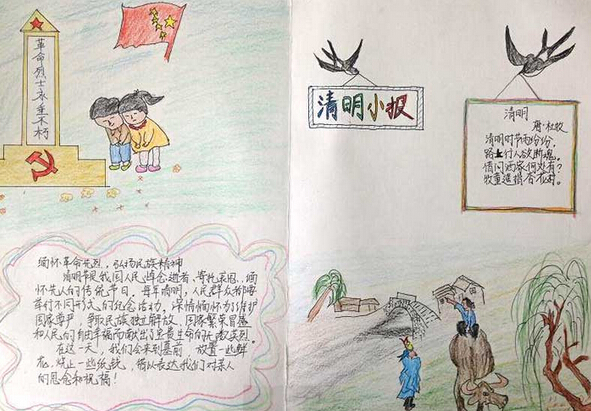 革命烈士永垂不朽
缅怀革命先烈，弘扬民族精神
清明节是我国人民悼念逝者、寄托哀思、缅
怀先人的传统节日。每年清明，人民群众都要
举行不同形式的纪念活动，深情缅怀为维护
国家尊严、争取民族独立解放、国家繁荣富强
和人民的自由幸福而献出了宝贵生命的无数英烈。
在这一天，我们会来到墓前，放置一些鲜
花，烧上一些纸钱，借以表达我们对亲人
的思念和祝福！
清明小报
清明
唐·杜牧
清明时节雨纷纷，
路上行人欲断魂。
借问酒家何处有？
牧童遥指杏花村。